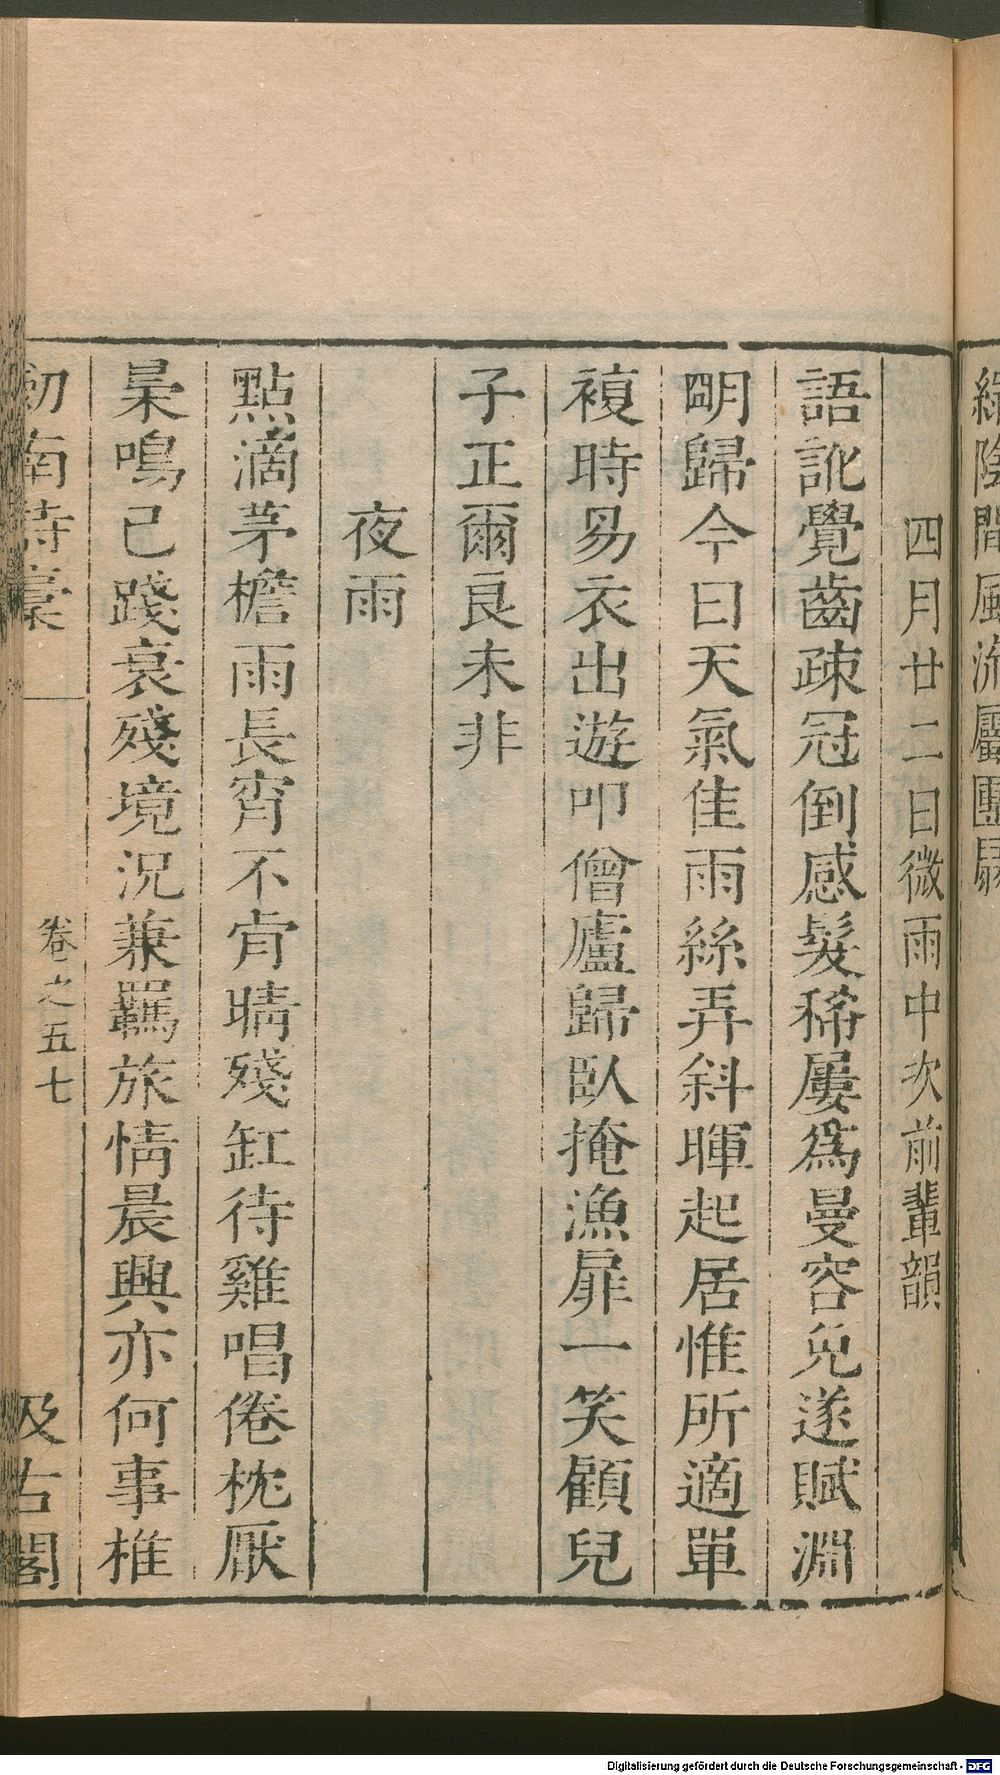 四月廿二日微雨中次前輩韻
語訛覺齒疎冠倒感髮稀屢爲曼容免遂賦淵
明歸今日天氣佳雨絲弄斜暉起居惟所適單
複時易衣出遊叩僧廬歸臥掩漁扉一笑顧兒
子正爾良未非
夜雨
點滴茅檐雨長宵不肯晴殘缸待雞唱倦枕厭
梟鳴已踐衰殘境況兼羈旅情晨興亦何事椎
劒南詩稾
卷之五七
汲古閣
Digitalisierung gefördert durch die Deutsche Forschungsgemeinschaft - DFG